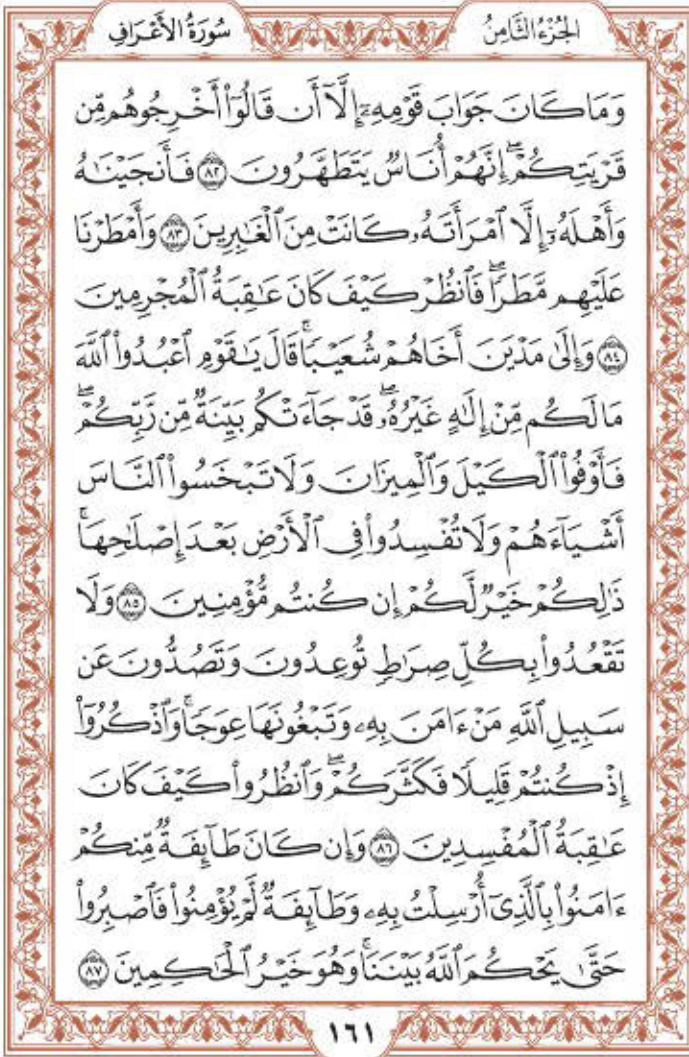 الجُزْءُ الثَّامِنُ
سُورَةُ الأَعْرَافِ
وَمَا كَانَ جَوَابَ قَوْمِهِۦٓ إِلَّآ أَن قَالُوٓا۟ أَخْرِجُوهُم مِّن
قَرْيَتِكُمْ ۖ إِنَّهُمْ أُنَاسٌ يَتَطَهَّرُونَ ٨٢ فَأَنجَيْنَٰهُ
وَأَهْلَهُۥٓ إِلَّا ٱمْرَأَتَهُۥ كَانَتْ مِنَ ٱلْغَٰبِرِينَ ٨٣ وَأَمْطَرْنَا
عَلَيْهِم مَّطَرًا ۖ فَٱنظُرْ كَيْفَ كَانَ عَٰقِبَةُ ٱلْمُجْرِمِينَ
٨٤ وَإِلَىٰ مَدْيَنَ أَخَاهُمْ شُعَيْبًا ۚ قَالَ يَٰقَوْمِ ٱعْبُدُوا۟ ٱللَّهَ
مَا لَكُم مِّنْ إِلَٰهٍ غَيْرُهُۥ ۖ قَدْ جَآءَتْكُم بَيِّنَةٌ مِّن رَّبِّكُمْ ۖ
فَأَوْفُوا۟ ٱلْكَيْلَ وَٱلْمِيزَانَ وَلَا تَبْخَسُوا۟ ٱلنَّاسَ
أَشْيَآءَهُمْ وَلَا تُفْسِدُوا۟ فِى ٱلْأَرْضِ بَعْدَ إِصْلَٰحِهَا ۚ
ذَٰلِكُمْ خَيْرٌ لَّكُمْ إِن كُنتُم مُّؤْمِنِينَ ٨٥ وَلَا
تَقْعُدُوا۟ بِكُلِّ صِرَٰطٍ تُوعِدُونَ وَتَصُدُّونَ عَن
سَبِيلِ ٱللَّهِ مَنْ ءَامَنَ بِهِۦ وَتَبْغُونَهَا عِوَجًا ۚ وَٱذْكُرُوٓا۟
إِذْ كُنتُمْ قَلِيلًا فَكَثَّرَكُمْ ۖ وَٱنظُرُوا۟ كَيْفَ كَانَ
عَٰقِبَةُ ٱلْمُفْسِدِينَ ٨٦ وَإِن كَانَ طَآئِفَةٌ مِّنكُمْ
ءَامَنُوا۟ بِٱلَّذِىٓ أُرْسِلْتُ بِهِۦ وَطَآئِفَةٌ لَّمْ يُؤْمِنُوا۟ فَٱصْبِرُوا۟
حَتَّىٰ يَحْكُمَ ٱللَّهُ بَيْنَنَا ۚ وَهُوَ خَيْرُ ٱلْحَٰكِمِينَ ٨٧
١٦١